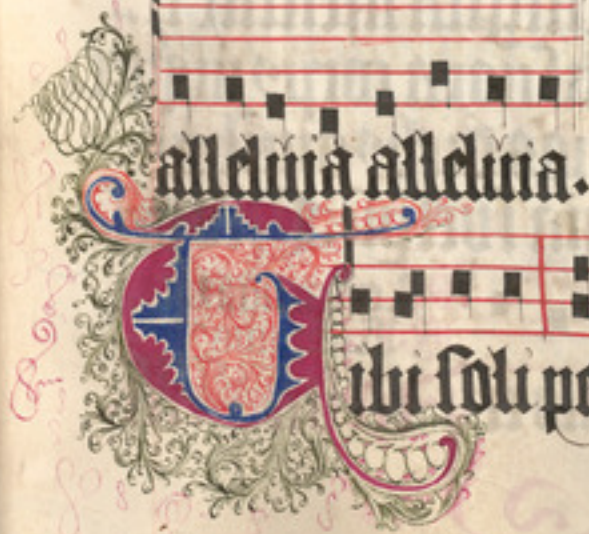 alleluia alleluia.
Tibi soli pc